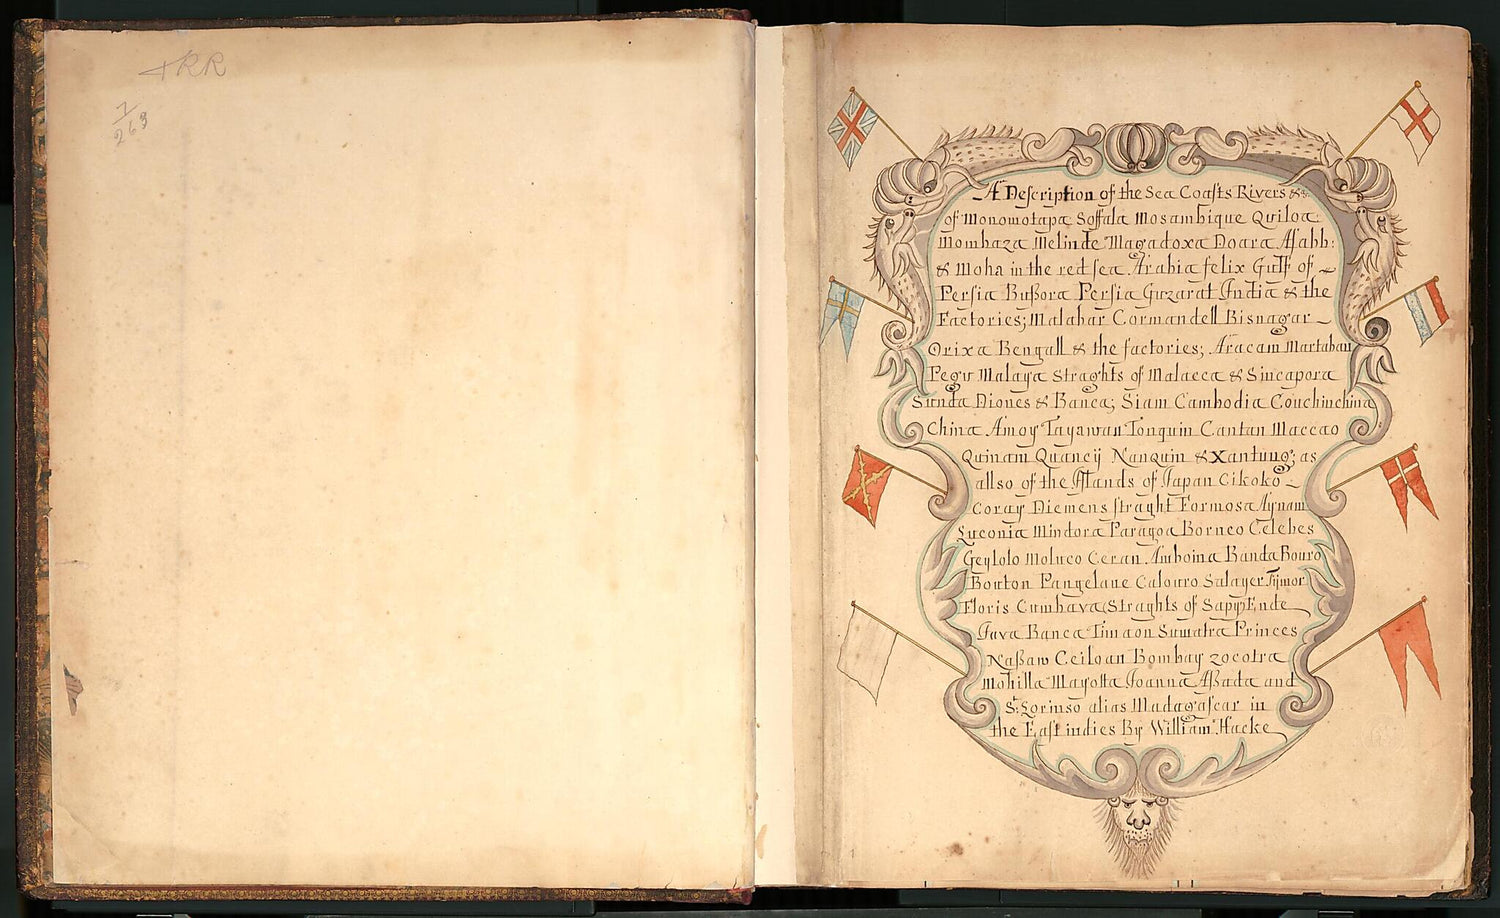 RR
1
263
A Description of the Sea Coasts Rivers &c
of Monomotapa Soffala Mosambique Quiloa
Mombaza Melinde Magadoxa Doara Assabb:
& Moha in the red sea Arabia felix Gulf of
Persia Bußora Persia Guzarat India & the
Factories; Malabar Cormandell Bisnagar
Orixa Bengall & the factories; Aracam Martaban
Pegu Malaya Straghts of Malacca & Sincapora
Sunda Diones & Banca; Siam Cambodia Couchinchina
China Amoy Tayawan Tonquin Cantan Maccao
Quinam Quancij Nanquin & Xantung; as
allso of the Islands of Japan Cikoko
Coray Diemens straght Formosa Aynam
Luconia Mindora Paragoa Borneo Celebes
Geylolo Moluco Ceran Amboina Banda Bouro
Bouton Pangelane Calouro Salayer Tijmor
Floris Cumbava Straghts of Sapy Ende
Java Banca Timaon Sumatra Princes
Naßaw Ceiloan Bombay zocotra
Mohilla Mayotta Joanna Aßada and
St: Lorinso alias Madagascar in
the East indies By William Hacke